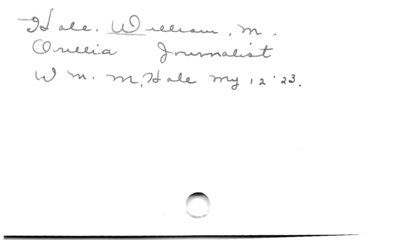 Hale. William, M.
Orillia Journalist
Wm. M. Hale My 12 '23.